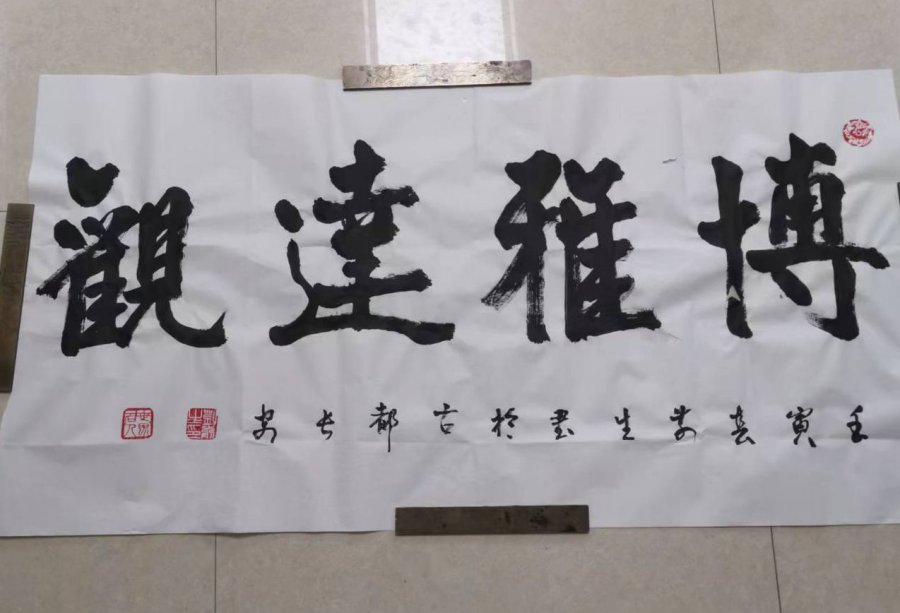 博雅達觀
壬寅春安生書於古都長安